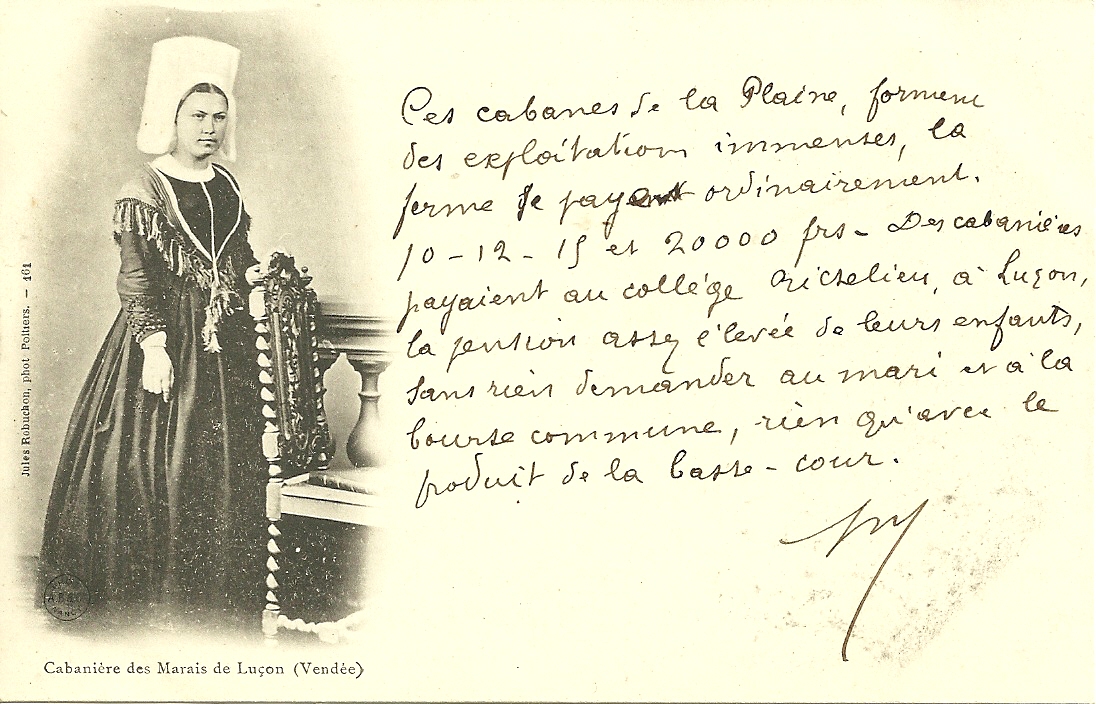 Ces cabanes de la Plaine, forment
des exploitations immenses, la
ferme se payent ordinairement.
10 - 12 - 15 et 20000 frs - Des cabanières
payaient au collége Richelieu, à Luçon,
la pension assez élevée de leurs enfants,
sans rien demander au mari et à la
bourse commune, rien qu'avec le
produit de la basse-cour.
Jules Robuchon, phot Poitiers. — 161
Cabanière des Marais de Luçon (Vendée)